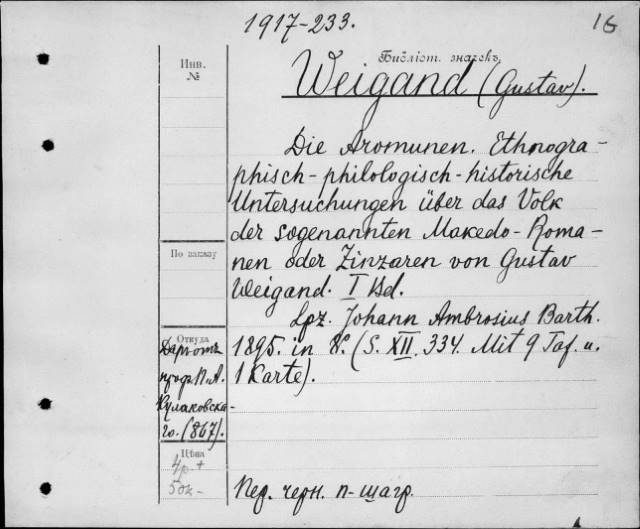 1917-233.
16
Инв.
№
Библіот. значекъ
Weigand (Gustav).
Die Aromunen. Ethnogra-
phisch-philologisch-historische
Untersuchungen über das Volk
der sogenannten Makedo-Roma-
По заказу
nen oder Zinzaren von Gustav
Weigand. I Bd.
Lpz. Johann Ambrosius Barth.
Откуда
1895. in 8°. (S. XII. 334. Mit 9 Taf. u.
1 Karte).
Даръ отъ
проф. П. А.
Кулаковска-
го. (867).
Цѣна
4р +
50к -
Пер. черн. п-шагр.